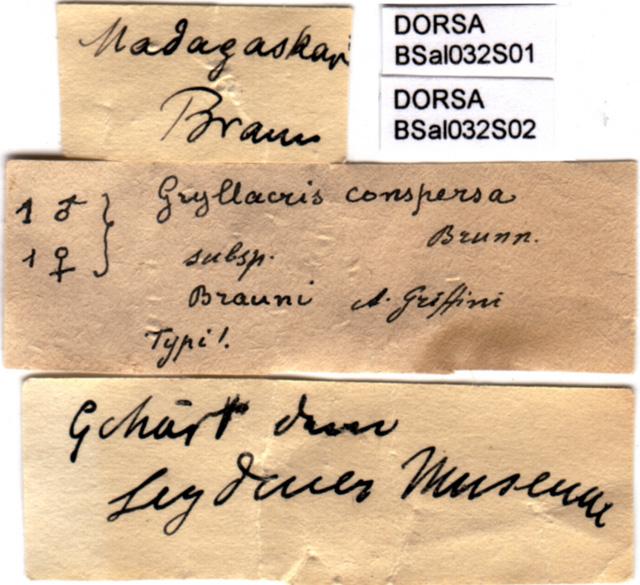 Madagaskar
Braun
DORSA
BSal032S01
DORSA
BSal032S02
1 ♂ } Gryllacris conspersa
Brunn.
1 ♀ subsp.
Brauni A. Griffini
Typi!
Gehört dem
Leydener Museum